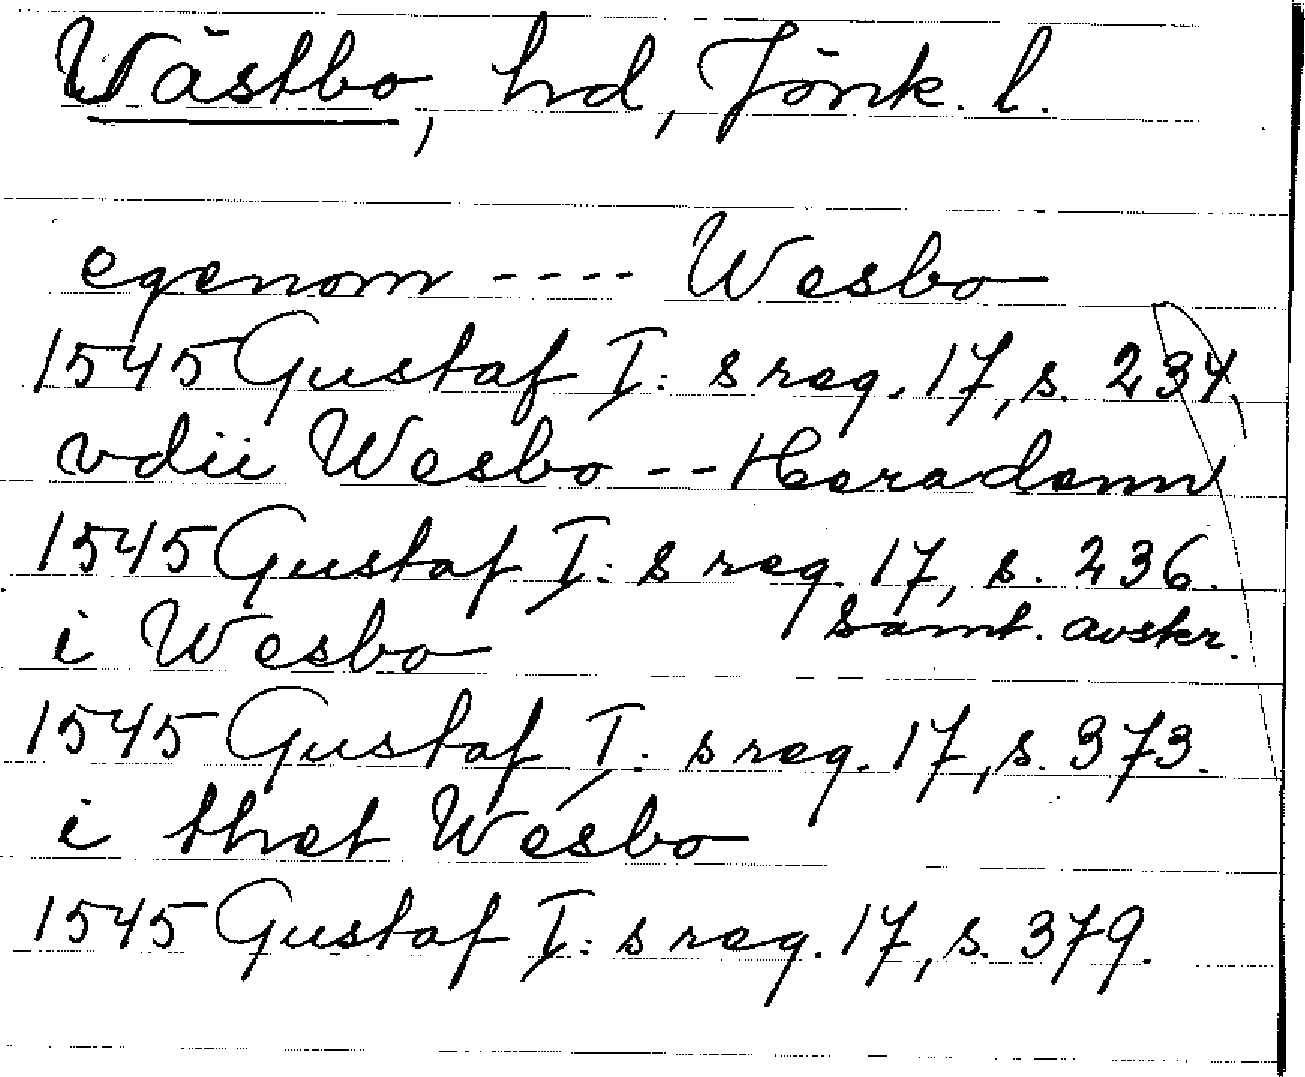 Wästbo, hd, Jönk. l.
egenom ---- Wesbo
1545 Gustaf I: s reg. 17, s. 234,
vdii Wesbo -- Heradenn
1545 Gustaf I: s reg. 17, s. 236.
samt. avskr.
i Wesbo
1545 Gustaf I: s reg. 17, s. 373.
i thet Wesbo
1545 Gustaf I: s reg. 17, s. 379.